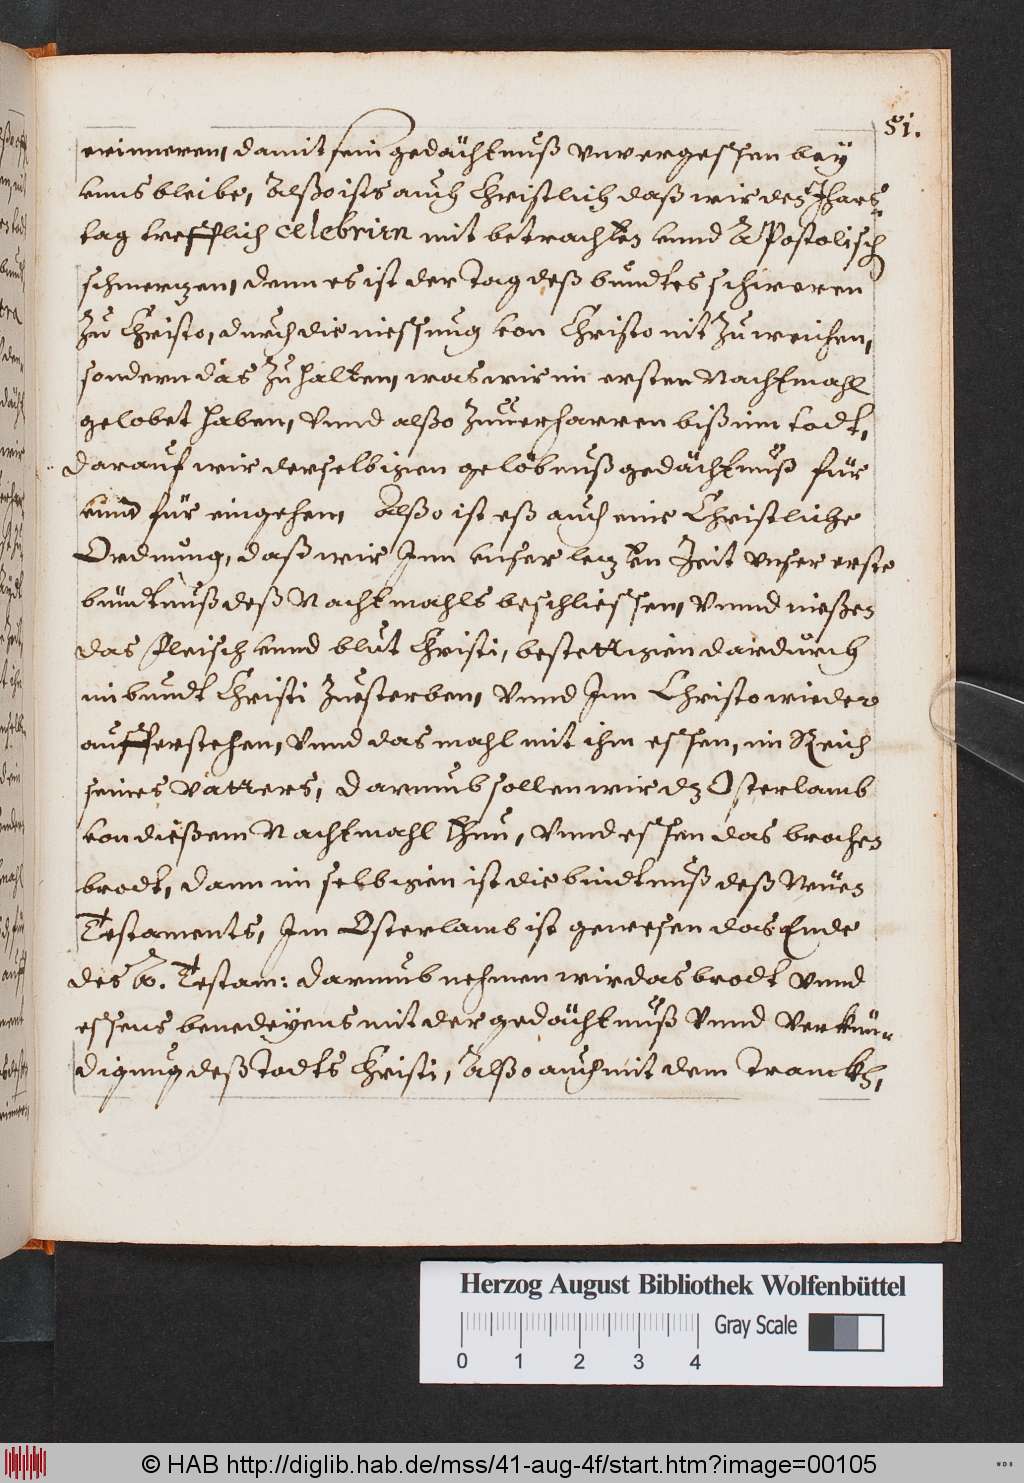 51.
erinneren, damit sein gedächtnuß vnvergessen bey
vnns bleibe, Alßo ists auch Christlich daß wir den Jhars=
tag trefflich celebrirn mit betrachten vnnd Apostolisch
schmertzen, denn es ist der tag deß bundtes schweren
zu Christo, durch die niessung von Christo nit zu weichen,
sondern das zu halten, was wir im ersten Nachtmahl
gelobet haben, Vnnd alßo zuuerharren biß inn todt,
darauf wir derselbigen gelöbnuß gedächtnuß für
vnnd für eingehem, Alßo ist eß auch eine Christliche
Ordnung, daß wir Inn vnser letzten Zeit vnser erste
bündtnuß deß Nachtmahls beschliessen, Vnnd nießen
das fleisch vnnd blut Christi, bestettigen dardurch
im bundt Christi zuesterben, Vnnd Inn Christo wieder
aufferstehen, Vnnd das mahl mit ihm essen, im Reich
seines Vatters, Darumb sollen wir dz Osterlamb
von dießem Nachtmahl thun, Vnnd essen das brochen
brodt, dann im selbigen ist die bindtnuß deß Neuen
Testaments, Im Osterlamb ist gewesen das Ende
des A. Testam: darumb nehmen wir das brodt Vnnd
essens benedeyens mit der gedächtnuß Vnnd Verkün=
digung deß todts Christi, Alßo auch mit dem tranckh,
Herzog August Bibliothek Wolfenbüttel
Gray Scale
0 1 2 3 4
© HAB http://diglib.hab.de/mss/41-aug-4f/start.htm?image=00105